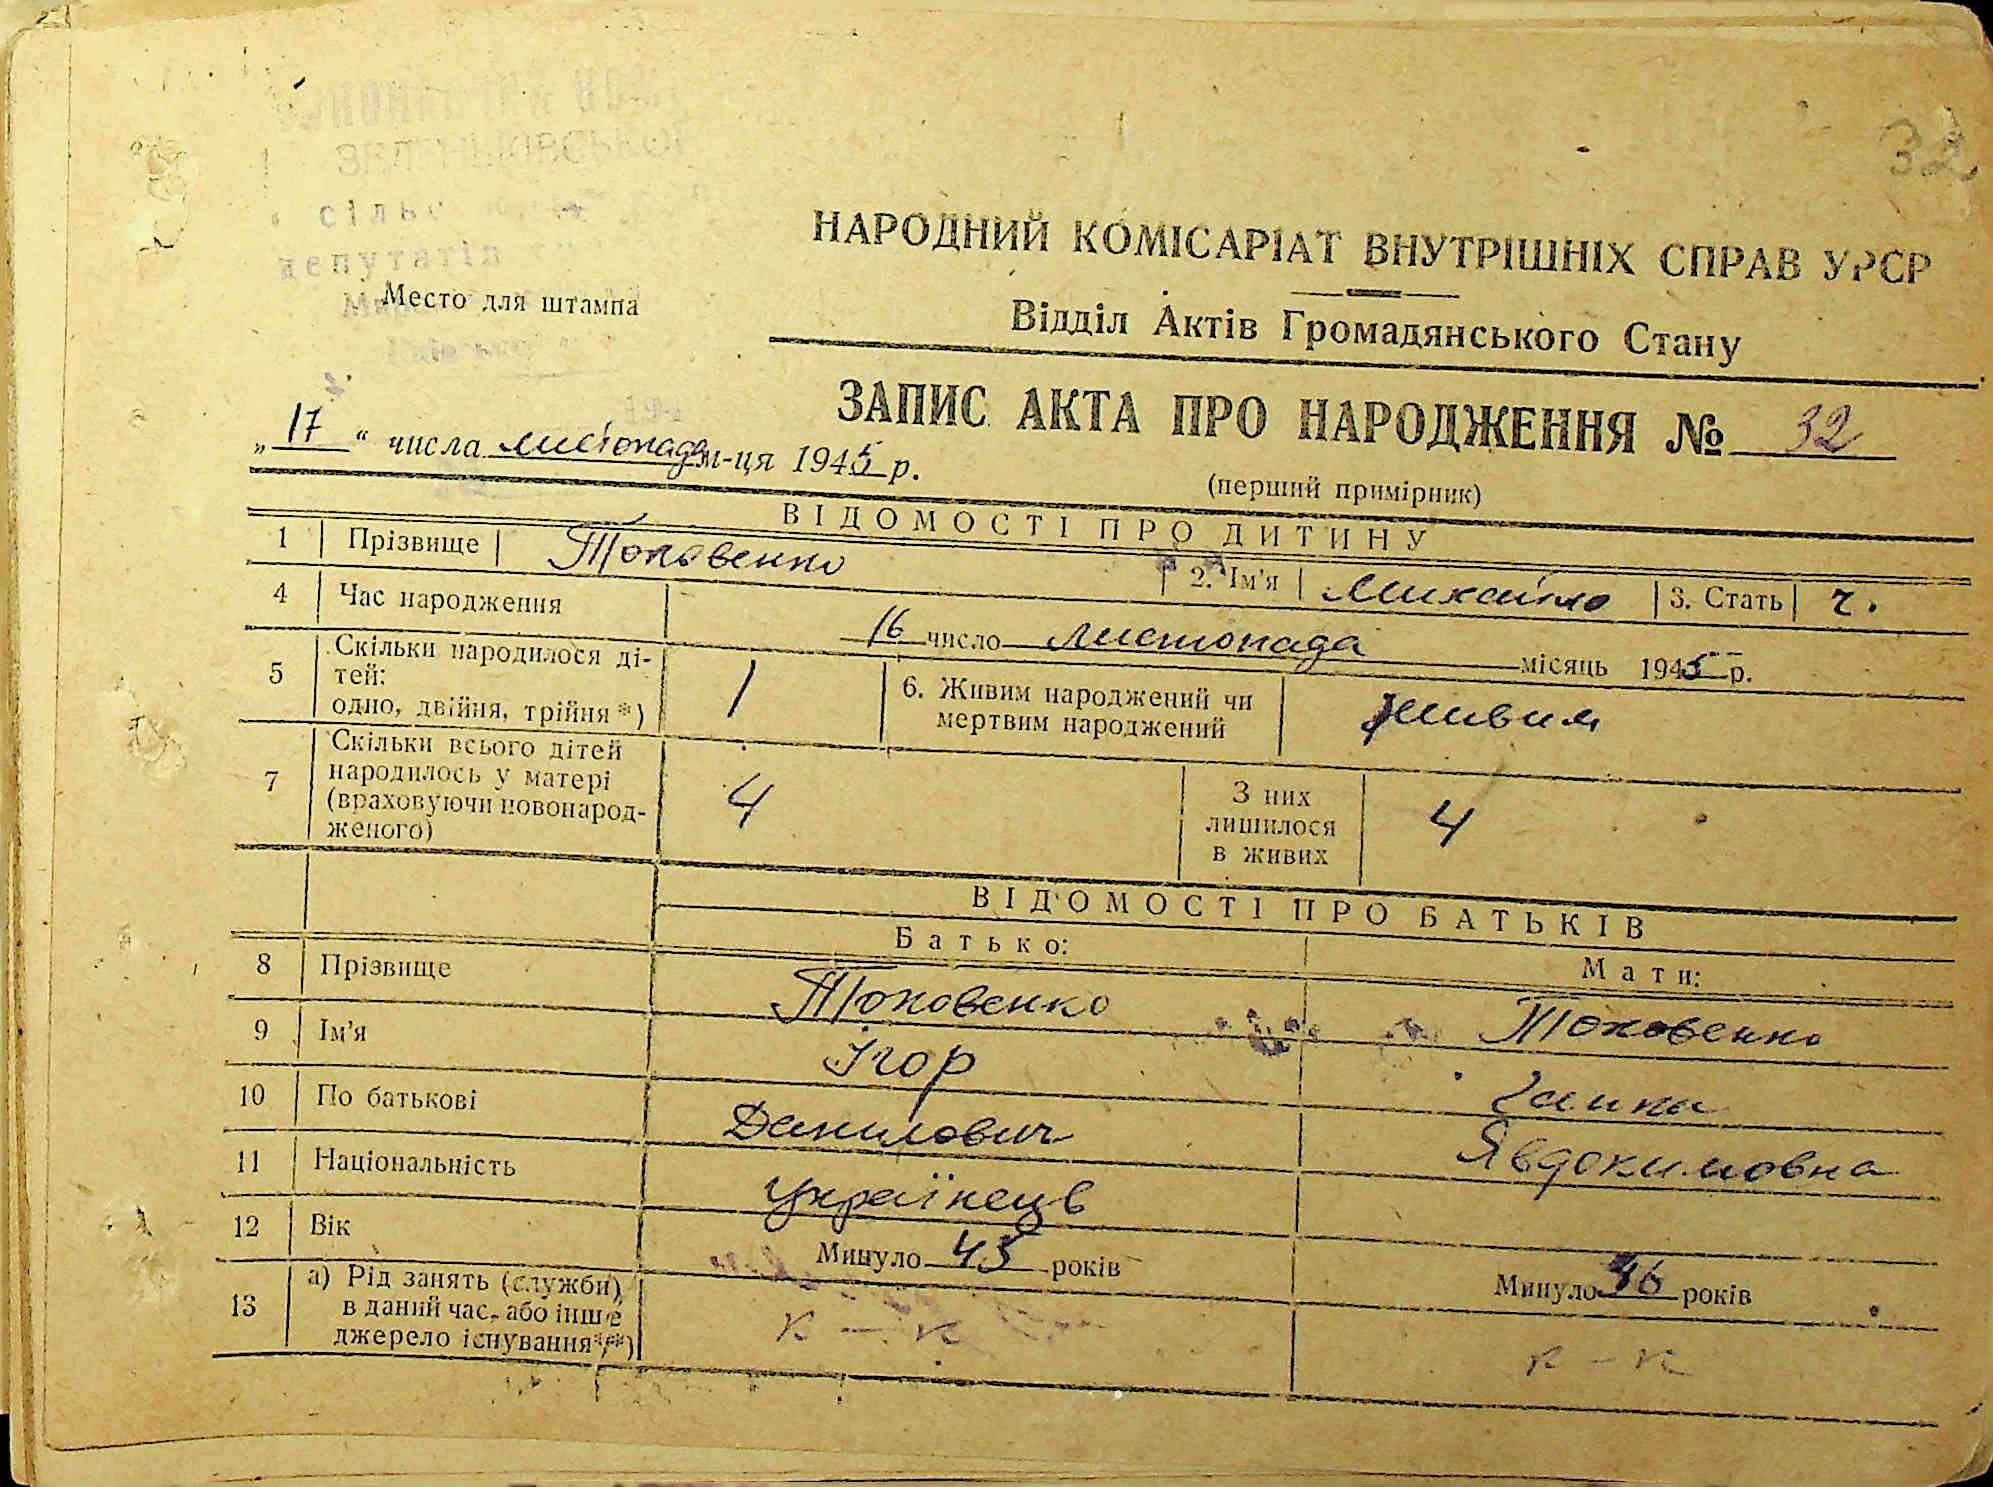 32
ЗЕЛЕНЬКІВСЬКОЇ
депутатів
Место для штампа
НАРОДНИЙ КОМІСАРІАТ ВНУТРІШНІХ СПРАВ УРСР
Відділ Актів Громадянського Стану
ЗАПИС АКТА ПРО НАРОДЖЕННЯ № 32
„17“ числа листопада м-ця 1945 р.
(перший примірник)
ВІДОМОСТІ ПРО ДИТИНУ
1 Прізвище Токовенко 2. Ім'я Михайло 3. Стать ч.
4 Час народження 16 число листопада місяць 1945 р.
5 Скільки народилося ді-
тей:
одно, двійня, трійня*) 1
6. Живим народжений чи
мертвим народжений живим
7 Скільки всього дітей
народилось у матері
(враховуючи новонарод-
женого) 4
З них
лишилося
в живих 4
ВІДОМОСТІ ПРО БАТЬКІВ
Батько: Мати:
8 Прізвище Токовенко Токовенко
9 Ім'я Ігор Ганна
10 По батькові Данилович Явдокимовна
11 Національність українець
12 Вік Минуло 45 років Минуло 46 років
13 а) Рід занять (служби)
в даний час, або інше
джерело існування**) к – к к – к